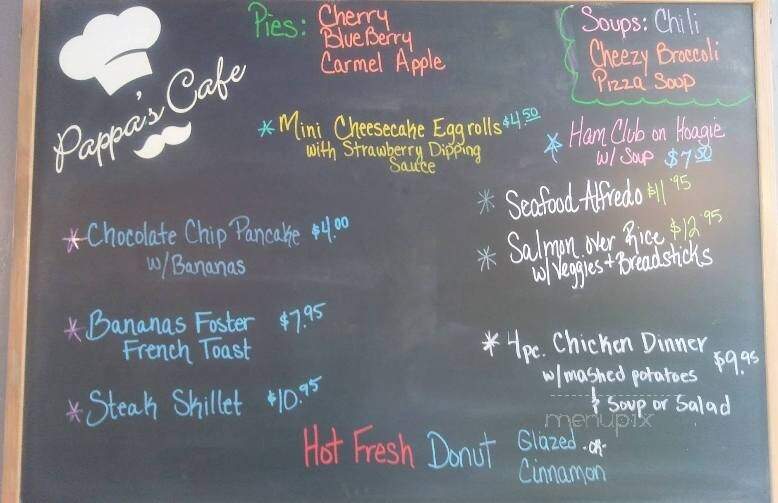 Pappa's Cafe
Pies: Cherry
BlueBerry
Carmel Apple
Soups: Chili
Cheezy Broccoli
Pizza Soup
* Mini Cheesecake Eggrolls $4.50
with Strawberry Dipping
Sauce
* Ham Club on Hoagie
w/ Soup $7.50
* Seafood Alfredo $11.95
* Salmon over Rice $12.95
w/ Veggies + Breadsticks
* Chocolate Chip Pancake $4.00
w/Bananas
* Bananas Foster $7.95
French Toast
* Steak Skillet $10.95
* 4pc. Chicken Dinner $9.95
w/mashed potatoes
& Soup or Salad
menupix
Hot Fresh Donut Glazed -or-
Cinnamon